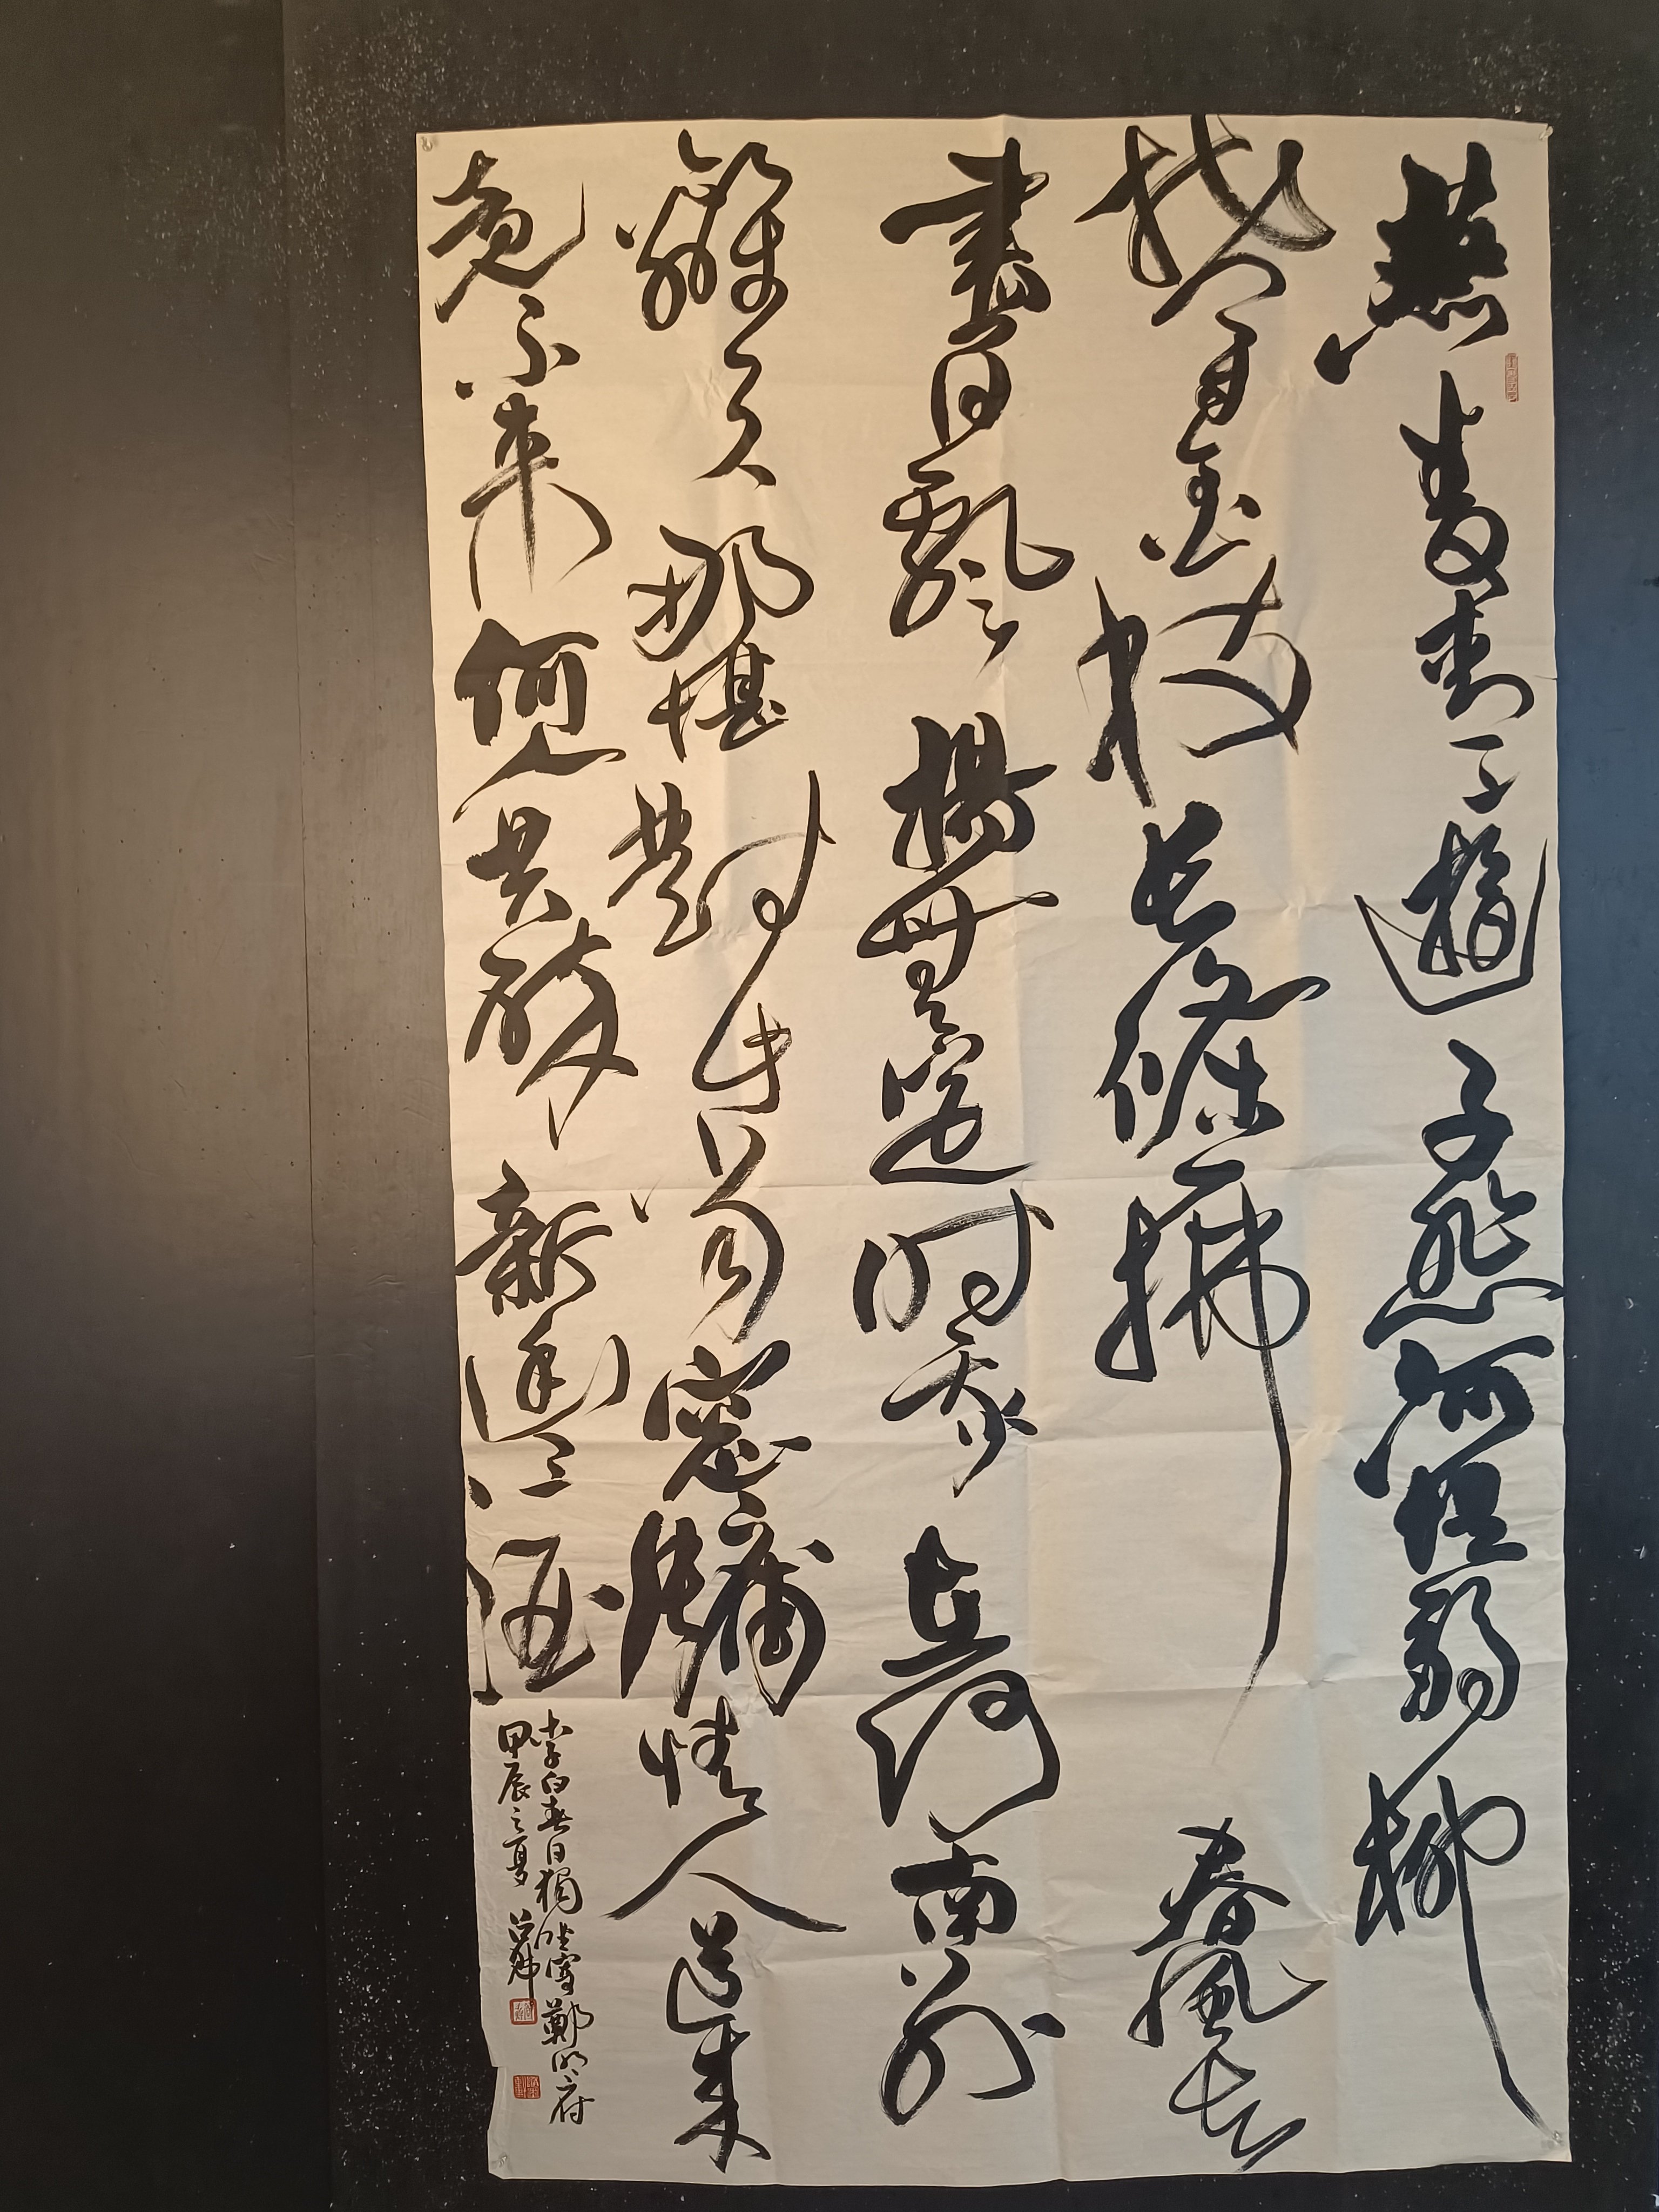 燕麥青〻遊子悲河堤弱柳
鬱金枝長條一拂春風去
盡日飄揚無定時我在河南別
離久那堪對此當窗牖情人道來
竟不來何人共醉新豐酒
李白春日獨坐寄鄭明府
甲辰之夏